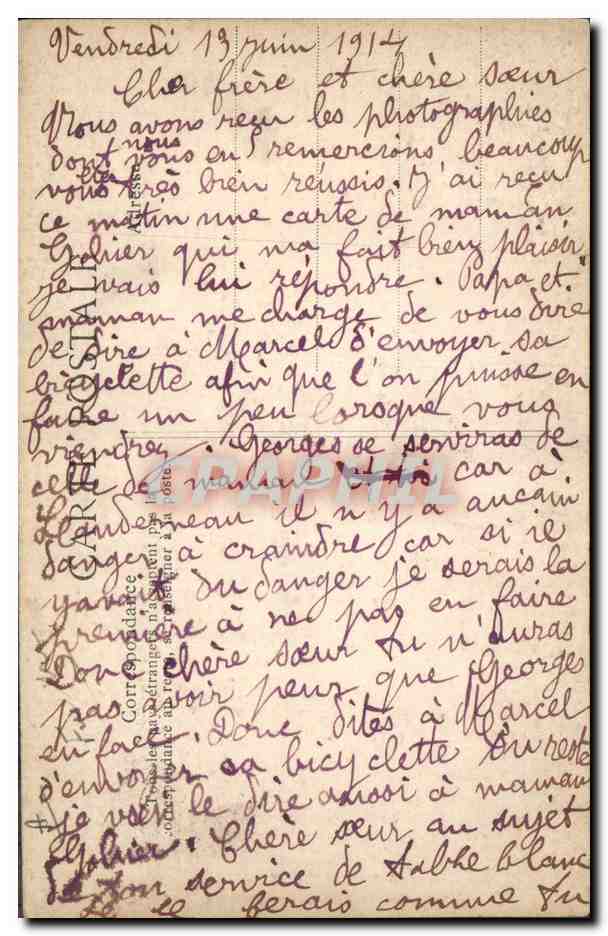 Vendredi 13 juin 1914
Cher frère et chère sœur
Nous avons reçu les photographies
dont nous vous en remercions beaucoup
vous très bien réussis. J'ai reçu
ce matin une carte de maman
Gohier qui ma fait bien plaisir
je vais lui répondre. Papa et
maman me charge de vous dire
de dire à Marcel d'envoyer sa
bicyclette afin que l'on puisse en
faire un peu lorsque vous
viendrez. Georges se serviras de
celle de maman car à
Landerneau il n'y a aucun
danger à craindre car si il
y avait du danger je serais la
première à ne pas en faire
Donc chère sœur tu n'auras
pas avoir peur que Georges
en face. Donc dites à Marcel
d'envoyer sa bicyclette du reste
je vien le dire aussi à maman
Gohier. Chère sœur au sujet
de ton service de table blanc
je le ferais comme tu
CARTE POSTALE
Correspondance
Adresse
Tous les pays étrangers n'acceptent pas la
correspondance au recto, se renseigner à la poste.
CPAPHIL